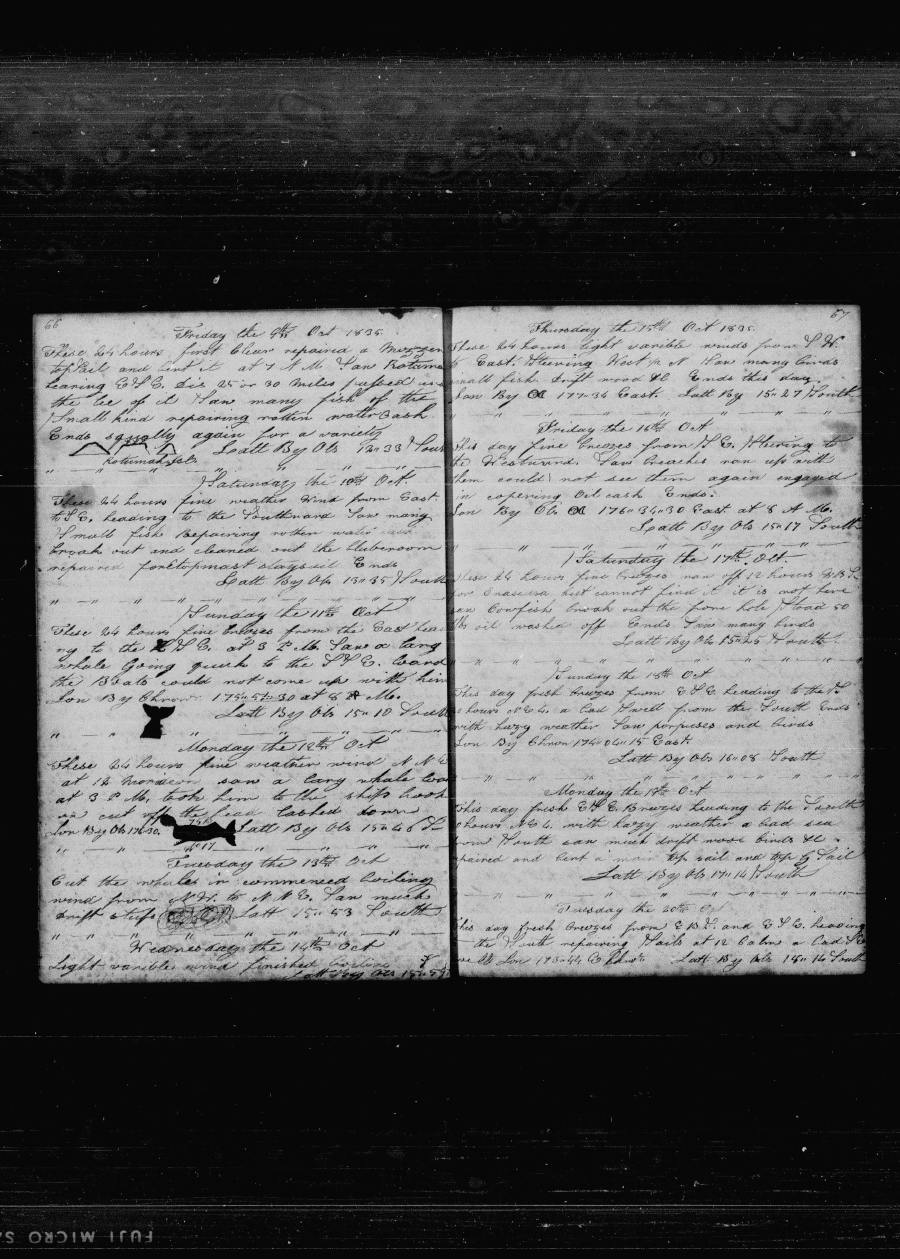 66
Friday the 9th Oct 1835
These 24 hours first Clear repaired a Mizzen
topsail and bent it at 7 A M Saw Rotuma
bearing E S E Dis 25 or 30 miles passed
the lee of it Saw many fish of the
Small kind repairing rotten water cask
Ends squally again for a variety
Latt By Obs 12 33 South
Saturday the 10th Oct
These 24 hours fine weather Wind from East
to S E. heading to the Southward Saw many
Small fish Repairing rotten water cask
break out and cleaned out the bluberroom
repaired foretopmast staysail Ends
Latt By Obs 13 35 South
Sunday the 11th Oct
These 24 hours fine breezes from the East head
ing to the S E. at 3 P M. Saw a larg
whale Going quick to the S S E. lowrd
the Boats could not come up with him
Lon By Chron 175 57 30 at 8 A Mo.
Latt By Obs 15 10 South
Monday the 12th Oct
These 24 hours fine weather wind N N E
at 12 saw a larg whale
at 3 P M. took him to the ship
cut off the head lashed down
Lon By Obs
75 B
No 17
Latt By Obs 15 46 S
Tuesday the 13th Oct
Cut the whale in commenced boiling
wind from N W. to N N E. Saw much
drift stuff
Latt 15 53 South
Wednesday the 14th Oct
Light varible wind finished boiling
Latt By Obs
67
Thursday the 15th Oct 1835
These 24 hours light varible winds from S W
to East. Steering West Saw many birds
small fish drift wood &c Ends this day
Lon By 177 34 East. Latt By 15 27 South
Friday the 16th Oct
This day fine breezes from S E. Steering to
the Westward. Saw breaches ran up with
them could not see them again engaged
in coopering Oil cask Ends.
Lon By Ob 176 34 30 East at 8 A Mo.
Latt By Obs 15 17 South
Saturday the 17th Oct.
These 24 hours fine breezes ran off 12 hours
for but cannot find it it is not here
Cowfish break out the fore hole Stoad 50
bbs oil washed off Ends Saw many birds
Latt By Ob 15 25 South
Sunday the 18th Oct
This day fresh breezes from E S E heading to the S.
hours N E. a bad swell from the South Ends
with hazy weather Saw porpuses and birds
Lon By Chron 174 04 15 East
Latt By Obs 16 08 South
Monday the 19th Oct
This day fresh E S E Breezes heading to the South
hours N E. with hazy weather a bad sea
from South saw much drift wood birds &c
repaired and bent a main top sail and top G Sail
Latt By Ob 17 14 South
Tuesday the 20th Oct
This day fresh breezes from E B S. and E S E. heading
the South repairing Sails at 12 Calm a bad
swell Lon 173 44 E Chron Latt By Ob 18 14 South
FUJI MICRO